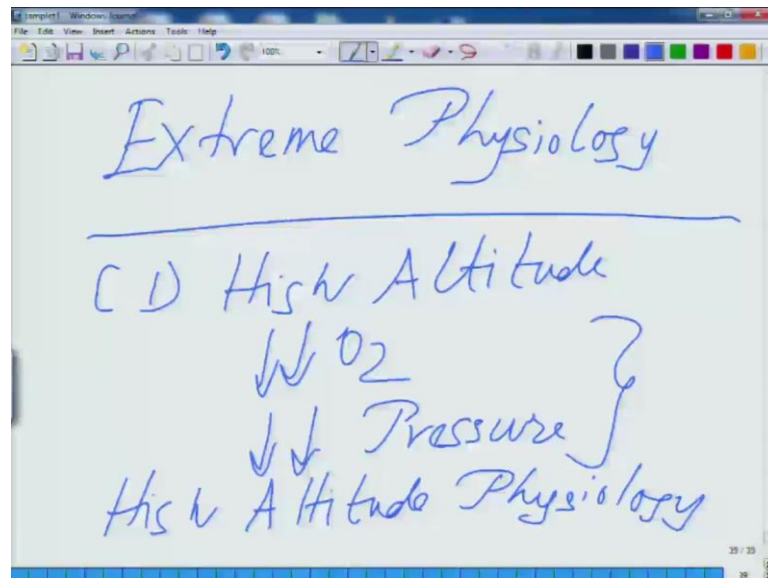 complet1 - Windows Journal
File Edit View Insert Actions Tools Help
100%
Extreme Physiology
(1) High Altitude
↓↓ O2
↓↓ Pressure }
High Altitude Physiology
39 / 39
39